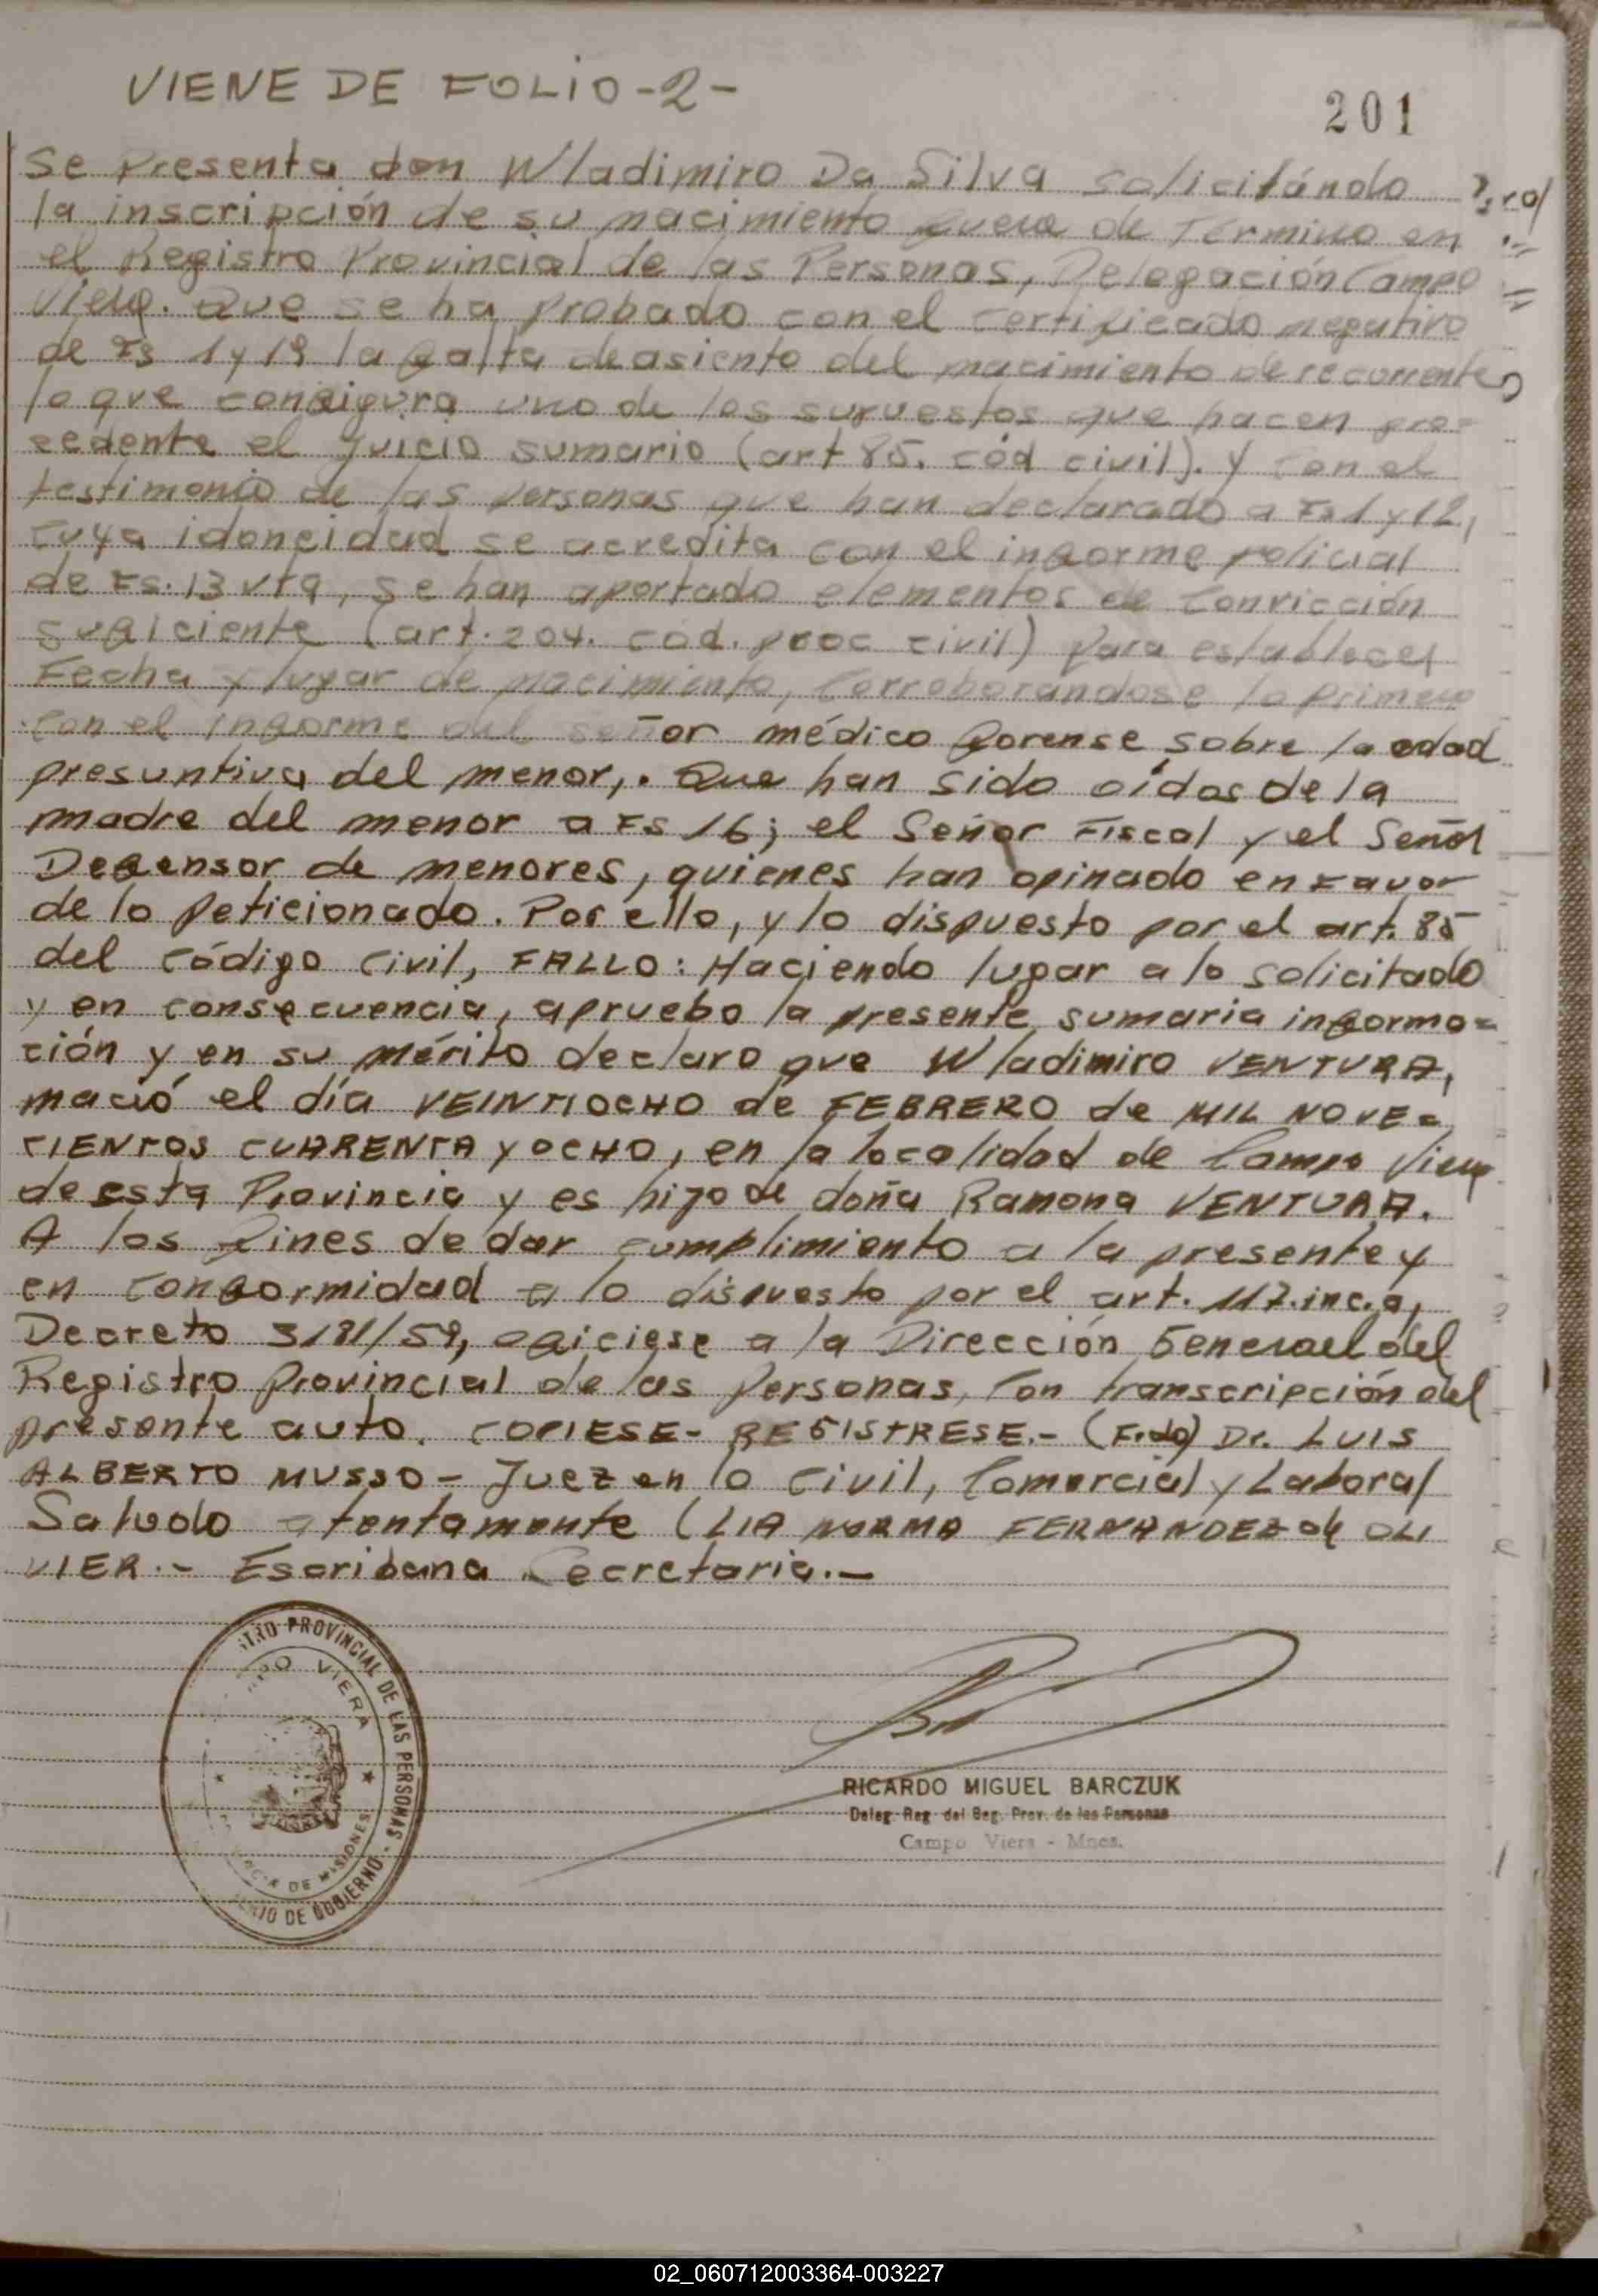 VIENE DE FOLIO -2-
201
Se presenta don Wladimiro Da Silva solicitándo
la inscripción de su nacimiento fuera de Término en
el Registro Provincial de las Personas, Delegación Campo
Viera. Que se ha probado con el certificado negativo
de Fs 1 y 19 la falta de asiento del nacimiento de recurrente,
lo que configura uno de los supuestos que hacen pro=
cedente el juicio sumario (art 85. cód civil). y con el
testimonio de las personas que han declarado a Fs 1 y 12,
cuya idoneidad se acredita con el informe policial
de Fs. 13 vta, se han aportado elementos de convicción
suficiente (art. 204. cód. proc civil) para establecer
Fecha y lugar de nacimiento, Corroborandose lo primero
con el informe del señor médico forense sobre la edad
presuntiva del menor,. Que han sido oídos de la
madre del menor a Fs 16; el Señor Fiscal y el Señor
Defensor de menores, quienes han opinado en Favor
de lo peticionado. Por ello, y lo dispuesto por el art. 85
del código civil, FALLO: Haciendo lugar a lo solicitado
y en consecuencia, apruebo la presente sumaria informa=
ción y en su mérito declaro que Wladimiro VENTURA,
nació el día VEINTIOCHO de FEBRERO de MIL NOVE=
CIENTOS CUARENTA y OCHO, en la localidad de Campo Viera
de esta Provincia y es hijo de doña Ramona VENTURA.
A los fines de dar cumplimiento a la presente y
en conformidad a lo dispuesto por el art. 117. inc. a,
Decreto 3181/59, ofíciese a la Dirección General del
Registro Provincial de las Personas, Con transcripción del
presente auto. COPIESE- REGISTRESE.- (F.do) Dr. LUIS
ALBERTO MUSSO - Juez en lo Civil, Comercial y Laboral
Saludo atentamente (LIA NORMA FERNANDEZ de OLI
VIER.- Escribana Secretaria.-
PROVINCIAL DE LAS PERSONAS -
VIERA
DE MISIONES
DE GOBIERNO
RICARDO MIGUEL BARCZUK
Deleg. Reg. del Reg. Prov. de las Personas
Campo Viera - Mnes.
02_060712003364-003227